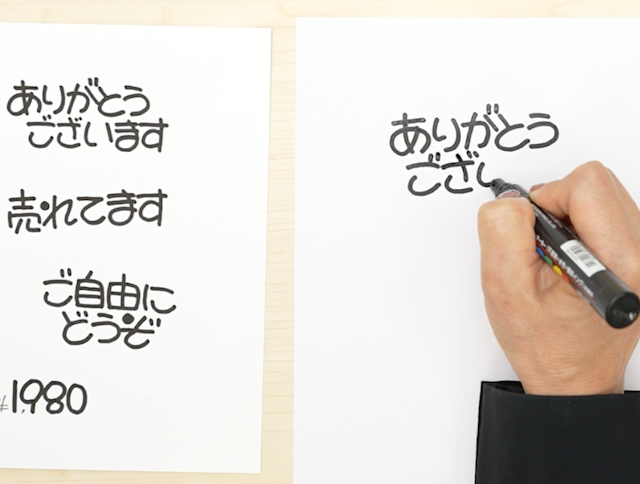 ありがとう
ございます
売れてます
ご自由に
どうぞ
1,980
ありがとう
ござい